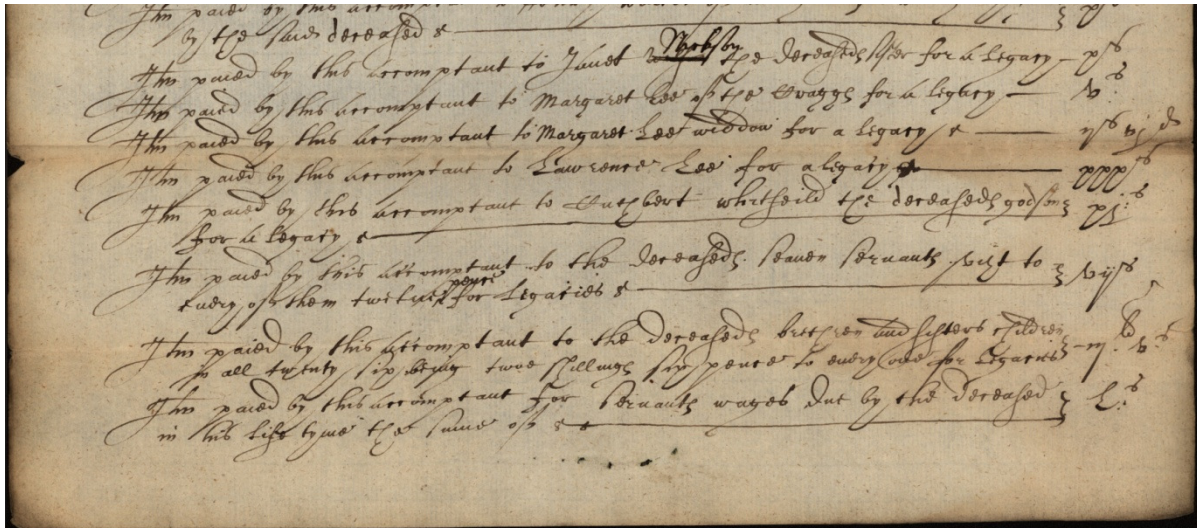 by the said deceased
Itm paied by this accomptant to Janet Nickson the deceaseds sister for a Legacy xs
Itm paied by this accomptant to Margaret Lee of the Cragge for a legacy vs
Itm paied by this accomptant to Margaret Lee widdow for a Legacy ijs vjd
Itm paied by this accomptant to Lawrence Lee for a legacy xxxs
Itm paied by this accomptant to Cuthbert whitfeild the deceaseds godson xjs
for a Legacy
Itm paied by this accomptant to the deceaseds seaven servants vizt to vijs
every of them twelve pence for Legacies
Itm paied by this accomptant to the deceaseds brethren and sisters children iijl vs
in all twenty six being twoe shillings six pence to every one for Legacies
Itm paied by this accomptant for servants wages due by the deceased Ls
in his life tyme the sume of